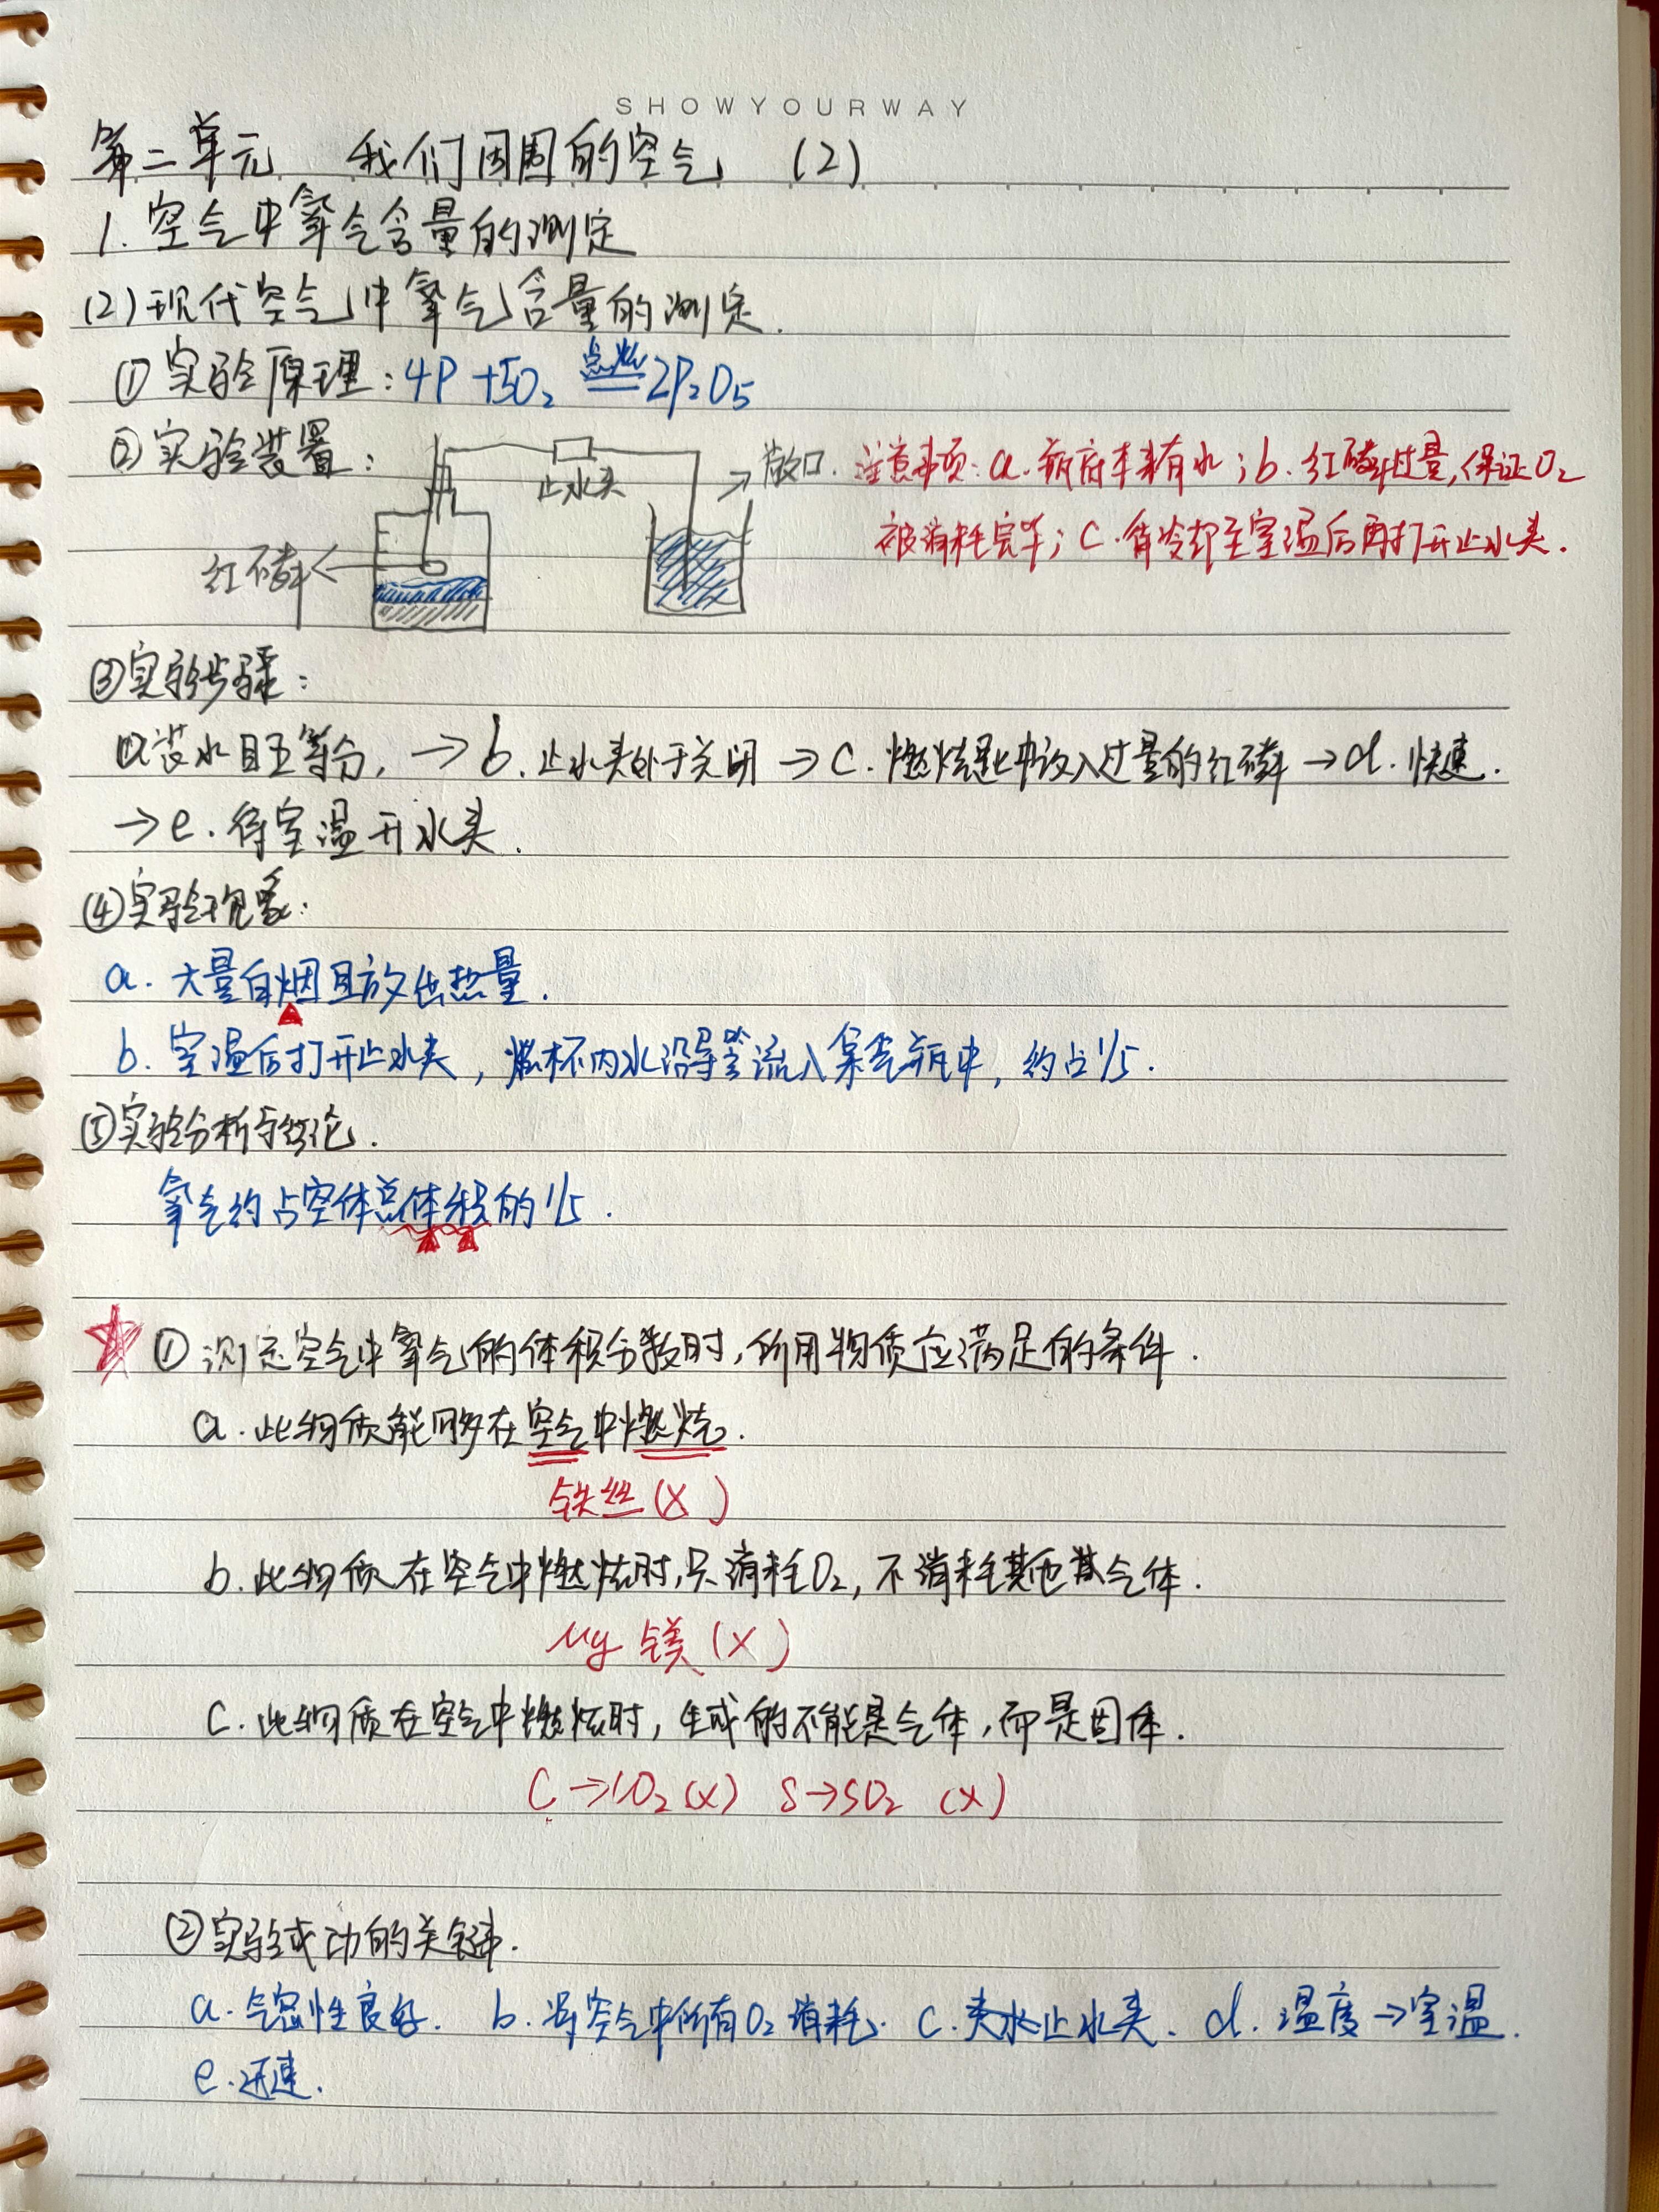 SHOWYOURWAY
第二单元 我们周围的空气 (2)
1. 空气中氧气含量的测定
(2) 现代空气中氧气含量的测定.
① 实验原理: 4P + 5O₂ 点燃 2P₂O₅
② 实验装置:
止水夹
敞口.
红磷
注意事项: a. 瓶底本来有水; b. 红磷过量, 保证O₂
被消耗完毕; c. 待冷却至室温后再打开止水夹.
③ 实验步骤:
a.装水且五等分. → b. 止水夹处于关闭 → c. 燃烧匙中放入过量的红磷 → d. 快速.
→ e. 待室温开水夹.
④ 实验现象:
a. 大量白烟且放出热量.
b. 室温后打开止水夹, 烧杯内水沿导管流入集气瓶中, 约占1/5.
⑤ 实验分析与结论.
氧气约占空体总体积的1/5.
① 测定空气中氧气的体积分数时, 所用物质应满足的条件.
a. 此物质能够在空气中燃烧.
铁丝 (X)
b. 此物质在空气中燃烧时, 只消耗O₂, 不消耗其他其气体.
Mg 镁 (X)
C. 此物质在空气中燃烧时, 生成的不能是气体, 而是固体.
C → CO₂ (X) S → SO₂ (X)
② 实验成功的关键.
a. 气密性良好. b. 将空气中所有O₂消耗. c. 夹止水夹. d. 温度 → 室温.
e. 迅速.